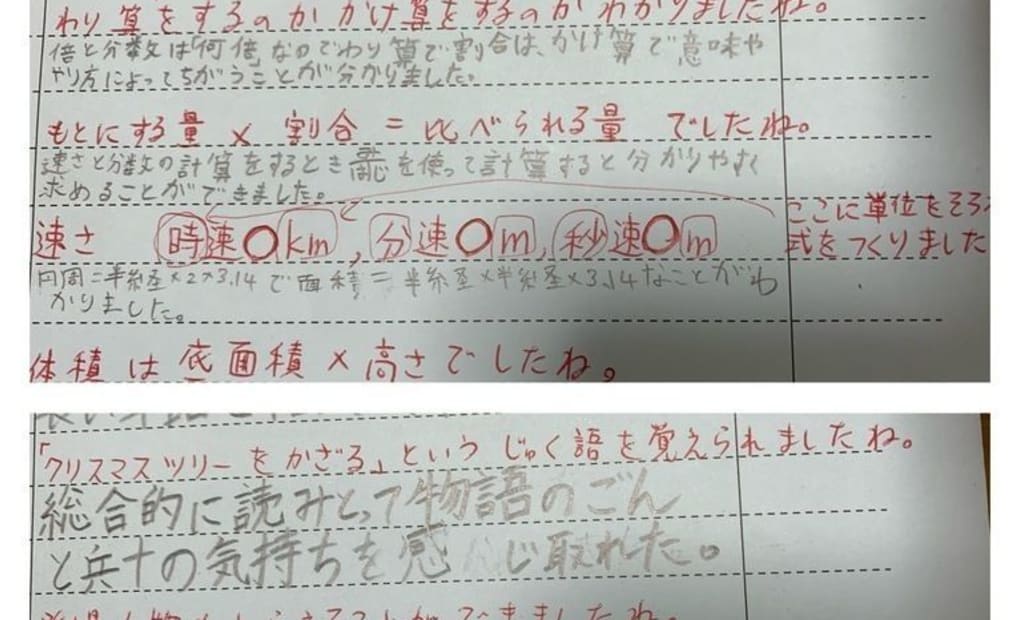 わり算をするのかかけ算をするのかわかりましたね。
倍と分数は「何倍」なのでわり算で割合は、かけ算で意味や
やり方によってちがうことが分かりました。
もとにする量 × 割合 = 比べられる量 でしたね。
速さと分数の計算をするとき を使って計算すると分かりやすく
求めることができました。
速さ 時速〇km, 分速〇m, 秒速〇m
ここに単位をそろ
式をつくりました
円周=半径×2×3.14で面積=半径×半径×3.14なことがわ
かりました。
体積は底面積×高さでしたね。
「クリスマスツリーをかざる」というじゅく語を覚えられましたね。
総合的に読みとって物語のごん
と兵十の気持ちを感じ取れた。